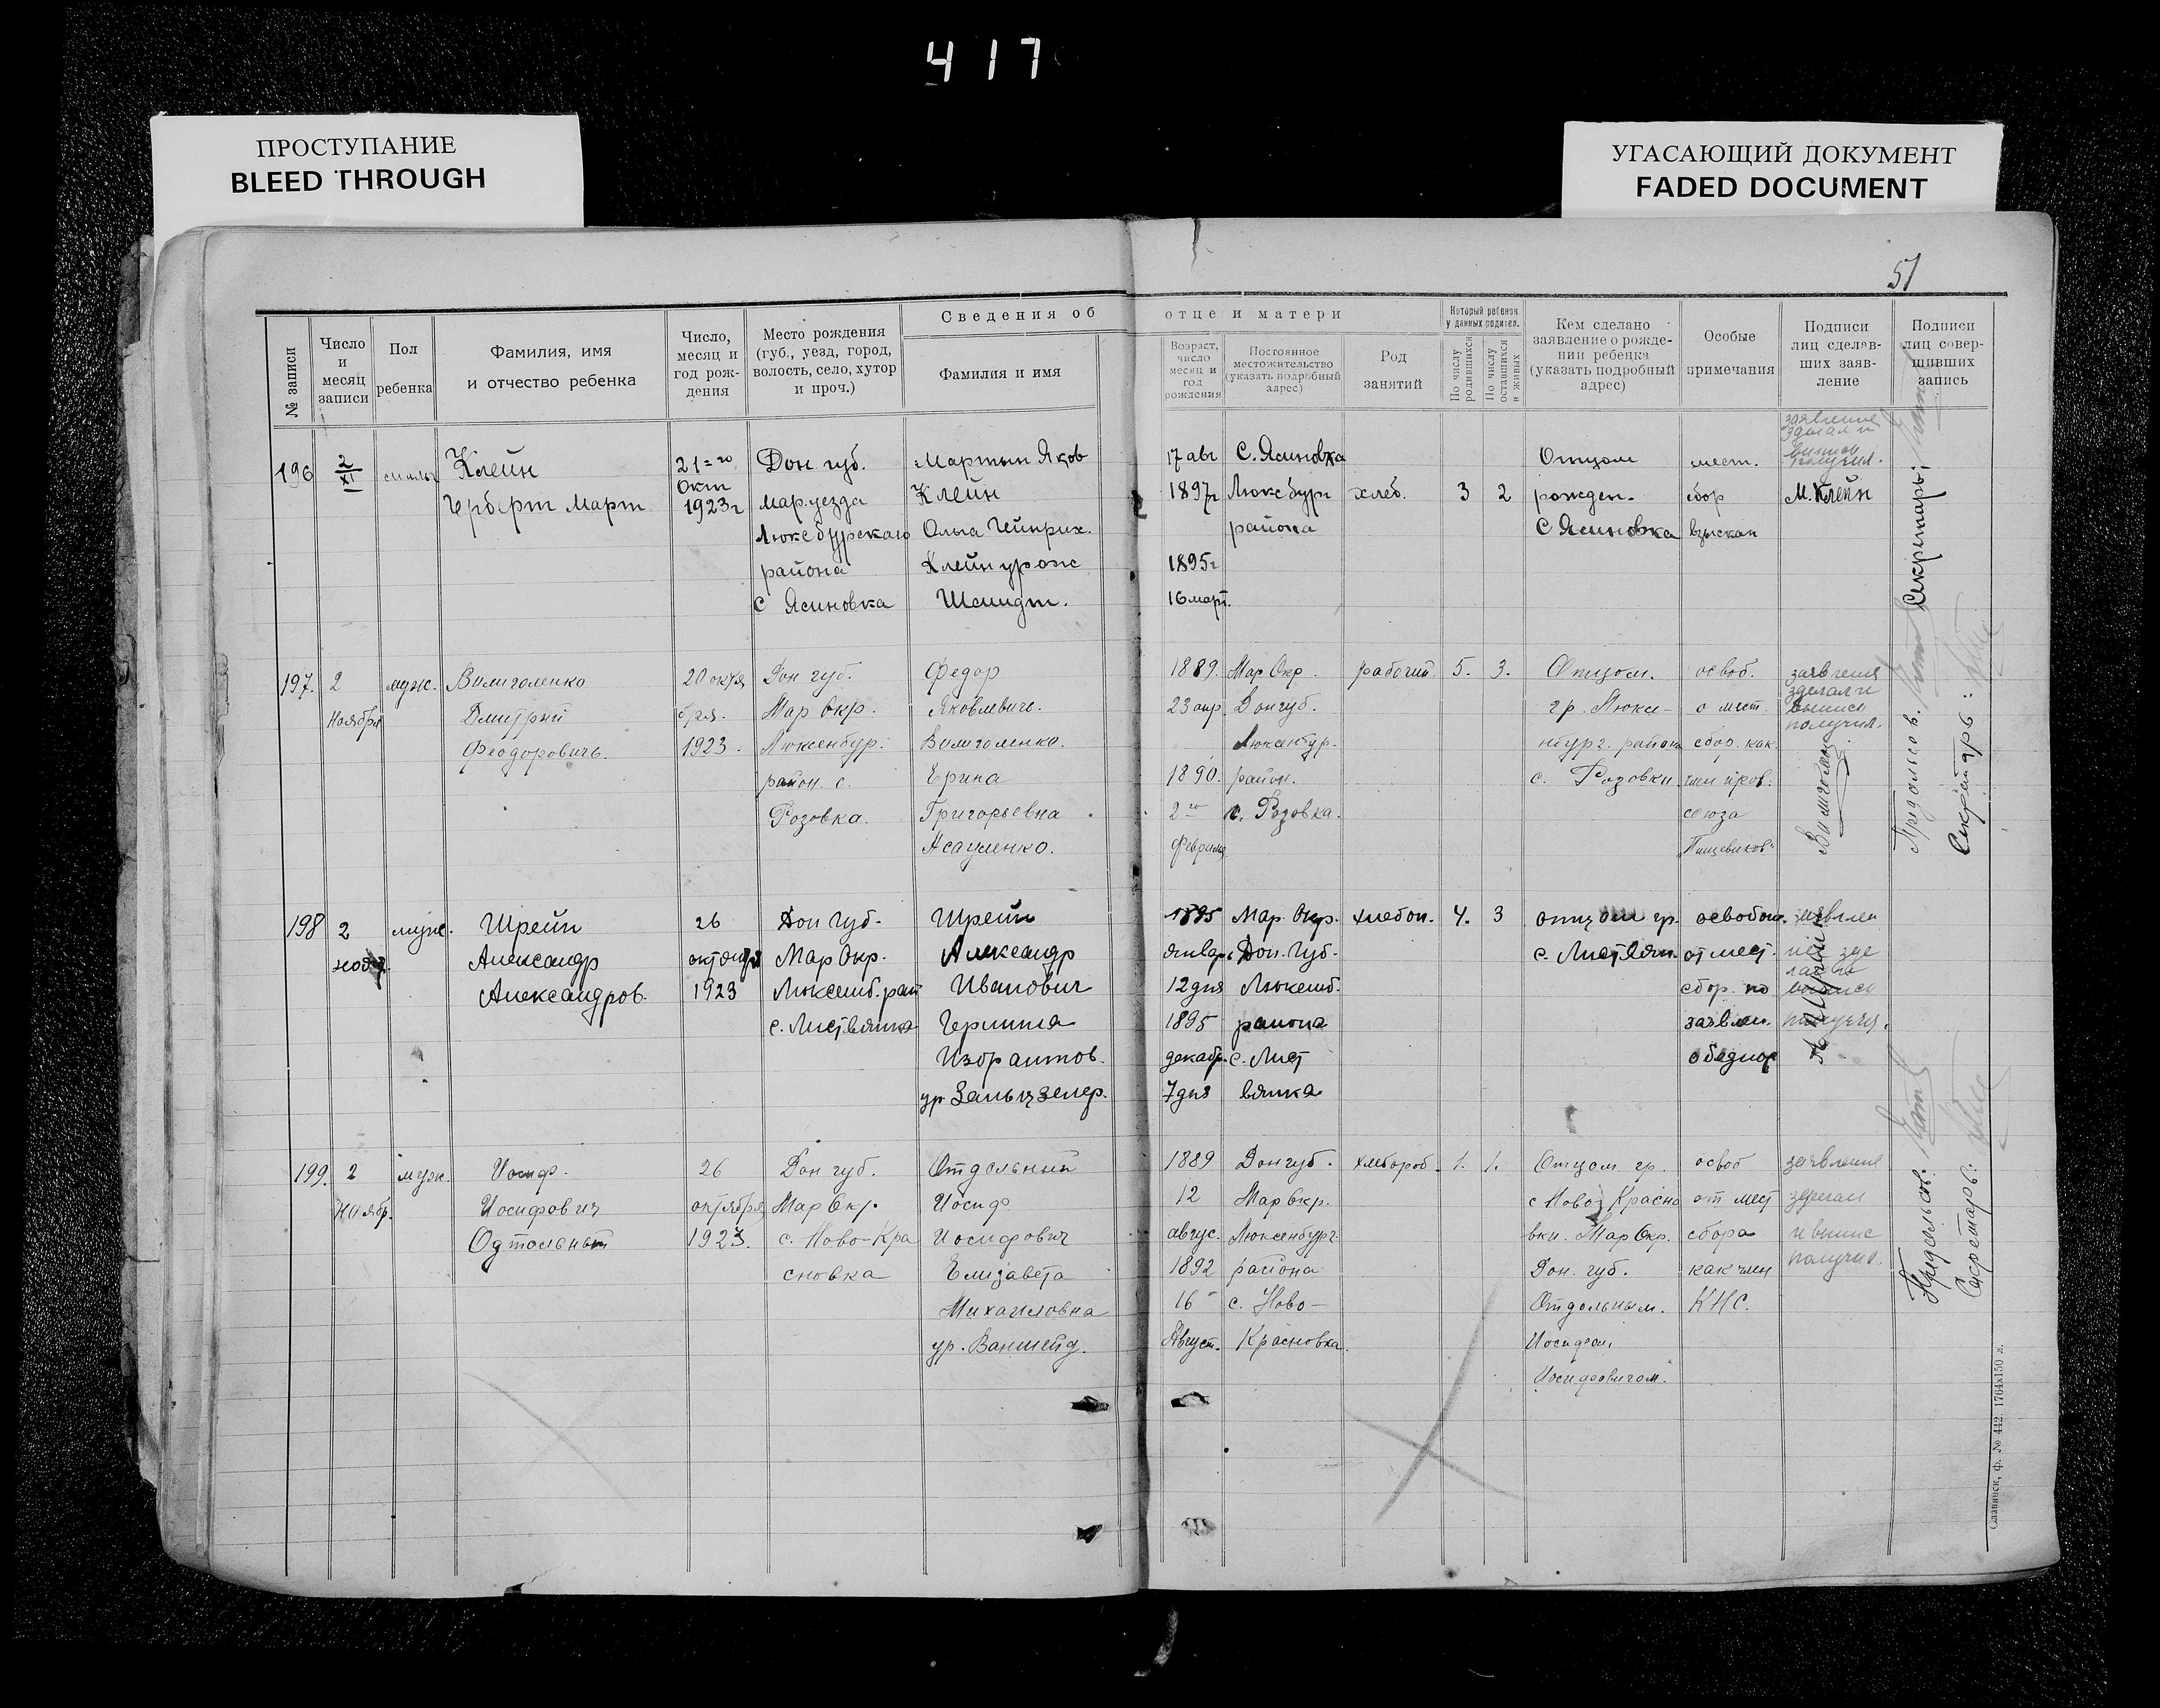 417
ПРОСТУПАНИЕ
BLEED THROUGH
УГАСАЮЩИЙ ДОКУМЕНТ
FADED DOCUMENT
51
№ записи
Число и месяц записи
Пол ребенка
Фамилия, имя и отчество ребенка
Число, месяц и год рождения
Место рождения (губ., уезд, город, волость, село, хутор и проч.)
Сведения об отце и матери
Фамилия и имя
Возраст, число месяц и год рождения
Постоянное местожительство (указать подробный адрес)
Род занятий
Который ребенок у данных родител.
По числу родившихся
По числу оставшихся в живых
Кем сделано заявление о рождении ребенка (указать подробный адрес)
Особые примечания
Подписи лиц сделавших заявление
Подписи лиц совершивших запись
196
2
XI
Клейн
Герберт Март
21-го
Окт
1923г
Дон. губ.
мар. уезда
Люксбурскаго
района
с Ясиновка
Мартын Яков
Клейн
Ольга Гейнрих.
Клейн урож
Шмидт.
17 авг
1897г
1895г
16 март.
С. Ясиновка
Люксбург
района
хлеб.
3
2
Отцом
рожден.
С Ясиновка
мест.
сбор
взыскан
заявление
зделал и
выпись
получил.
М. Клейн
197.
2
Ноября
муж.
Вилиголенко
Дмитрий
Феодоровичь.
20 октя
бря.
1923.
Дон губ.
Мар Окр.
Люксенбур.
район. с.
Розовка.
Федор
Яковлевичь.
Вилиголенко.
Ерина
Григорьевна
Асауленко.
1889.
23 апр.
1890.
2-го
февраля
Мар Окр.
Дон губ.
Люксенбур.
район.
с. Розовка.
рабочий
5.
3.
Отцом.
гр. Люксе-
нбург. района
с. Розовки
освоб.
о мест.
сбор. как
член проф.
союза
Пищевиков
заявления
зделал и
выпись
получил.
198
2
муж.
Шрейн
Александр
Александров.
26
октября
1923
Дон губ.
Мар Окр.
Люксемб. рай
с. Листвянка
Шрейн
Александр
Иванович
Гермина
1895
январ.
12 дня
1895
декабр.
7 дня
Мар. Окр.
Дон. губ.
Люксемб.
района
с. Лист
вянка
хлебоп.
4.
3
отцом гр.
с. Листвян.
освобож.
от мест.
сбор. по
заявлен.
199.
2
Ноябр.
муж.
Иосиф.
Иосифович
Одтельный
26
октября
1923.
Дон губ.
Мар Окр.
с. Ново-Кра
сновка
Отдельный
Иосиф
Иосифович
Елизавета
Михаиловна
ур. Ваншейд.
1889
12
авгус.
1892
16
Август.
Дон губ.
Мар Окр.
Люксенбург.
района
с. Ново-
Красновка.
хлебороб.
1.
1.
Отцом гр.
с Ново Красно
вки. Мар Окр.
Дон. губ.
Отдельным.
Иосифом
Иосифовичом.
освоб
от мест
сбора
как член
КНС.
заявление
зделал
и выпис
получил.
Предсельсов.
Секретарь:
Предсельсов:
Секретарь:
Славянск, ф. № 442. 1764х150 л.